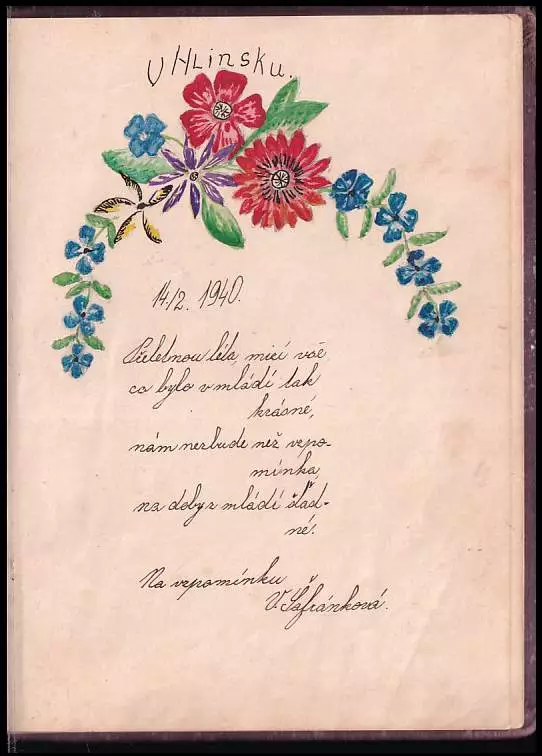 V Hlinsku.
14./2. 1940.
Přeletnou léta, mizí vše
co bylo v mládí tak
krásné,
nám nezbude než vzpo-
mínka,
na doby z mládí
né.
Na vzpomínku
V. Šafránková.